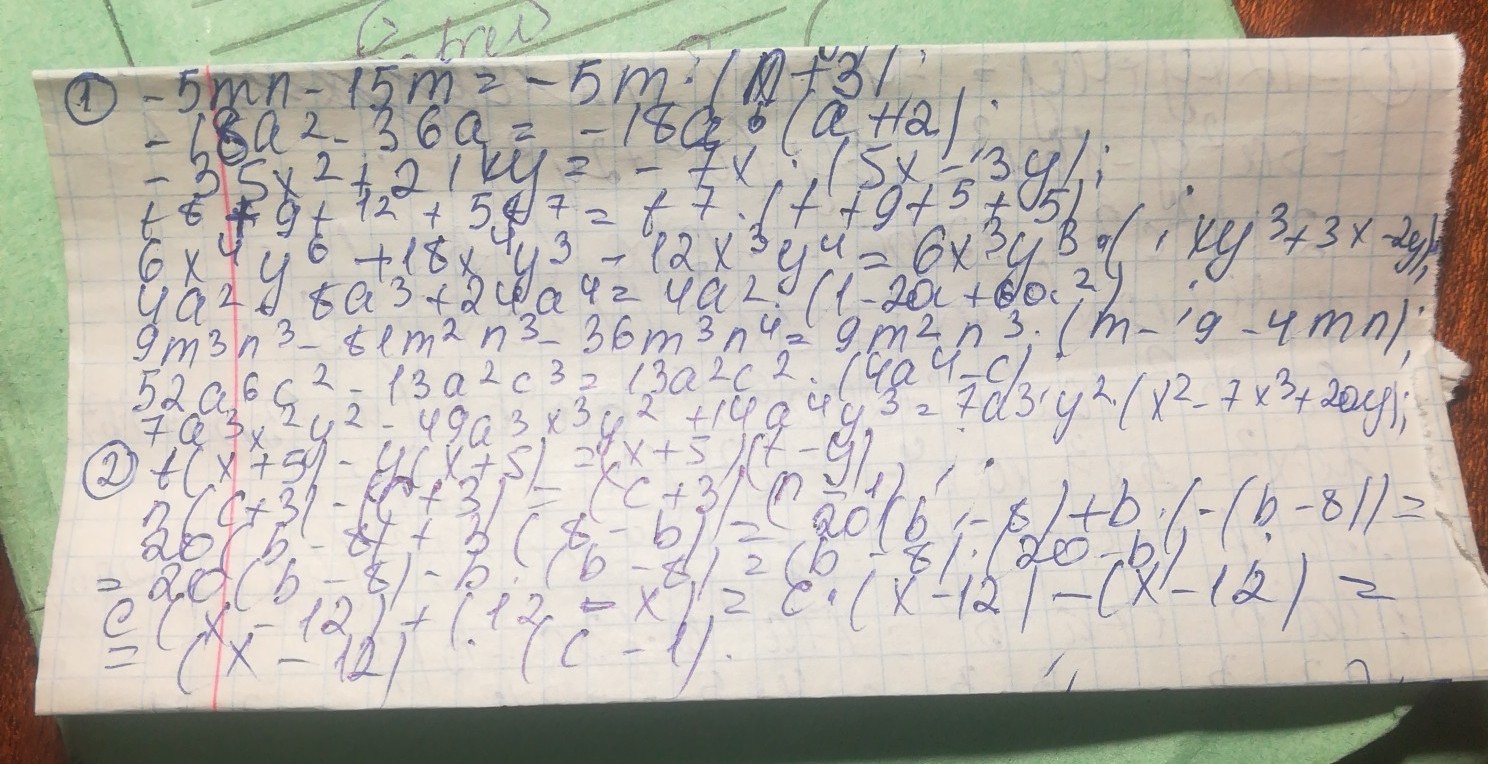 ① -5mn - 15m = -5m·(n+3);
-18a² - 36a = -18a·(a+2);
-35x² + 21xy = -7x·(5x-3y);
t⁸ + 9t¹² + 5t⁷ = t⁷·(t+9t⁵+5)
6x⁴y⁶ + 18x⁴y³ - 12x³y⁴ = 6x³y³·(xy³+3x-2y);
4a² - 8a³ + 24a⁴ = 4a²·(1-2a+6a²)
9m³n³ - 81m²n³ - 36m³n⁴ = 9m²n³·(m-9-4mn);
52a⁶c² - 13a²c³ = 13a²c²·(4a⁴-c)
7a³x²y² - 49a³x³y² + 14a⁴y³ = 7a³y²·(x²-7x³+2ay);
② t(x+5) - y(x+5) = (x+5)(t-y)
n(c+3) - (c+3) = (c+3)(n-1);
20(b-8) + b(8-b) = 20(b-8)+b·(-(b-8)) =
= 20(b-8) - b·(b-8) = (b-8)·(20-b)
c(x-12) + (12-x) = c·(x-12) - (x-12) =
= (x-12)·(c-1).